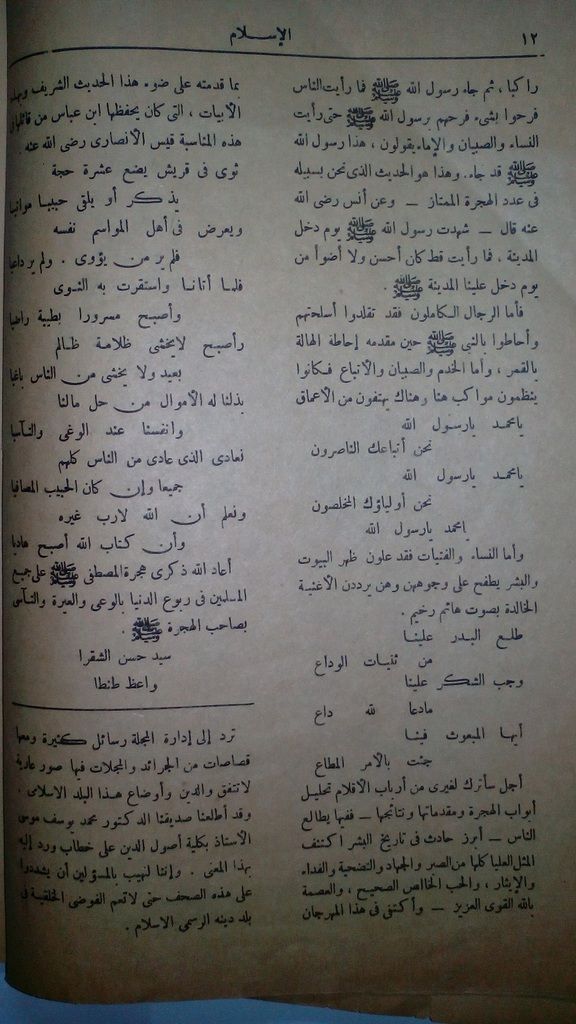 ١٢
الإسلام
راكبا ، ثم جاء رسول الله ﷺ فما رأيت الناس
فرحوا بشىء فرحهم برسول الله ﷺ حتى رأيت
النساء والصبيان والإماء يقولون ، هذا رسول الله
ﷺ قد جاء. وهذا هو الحديث الذى نحن بسبيله
فى عدد الهجرة الممتاز — وعن أنس رضى الله
عنه قال — شهدت رسول الله ﷺ يوم دخل
المدينة ، فما رأيت قط كان أحسن ولا أضوأ من
يوم دخل علينا المدينة ﷺ .
فأما الرجال الكاملون فقد تقلدوا أسلحتهم
وأحاطوا بالنبى ﷺ حين مقدمه إحاطة الهالة
بالقمر ، وأما الخدم والصبيان والأتباع فكانوا
ينظمون مواكب هنا وهناك يهتفون من الأعماق
يامحمد يارسول الله
نحن أتباعك الناصرون
يامحمد يارسول الله
نحن أولياؤك المخلصون
يامحمد يارسول الله
وأما النساء والفتيات فقد علون ظهر البيوت
والبشر يطفح على وجوههن وهن يرددن الأغنية
الخالدة بصوت هاتم رخيم .
طلع البدر علينا
من ثنيات الوداع
وجب الشكر علينا
مادعا لله داع
أيها المبعوث فينا
جئت بالأمر المطاع
أجل سأترك لغيرى من أرباب الأقلام تحليل
أبواب الهجرة ومقدماتها ونتائجها — ففيها يطالع
الناس — أبرز حادث فى تاريخ البشر اكتنف
المثل العليا كلها من الصبر والجهاد والتضحية والفداء
والإيثار ، والحب الخالص الصحيح ، والعصمة
بالله القوى العزيز — وأكتفى فى هذا المهرجان
بما قدمته على ضوء هذا الحديث الشريف وبهذه
الأبيات ، التى كان يحفظها ابن عباس من قائلها فى
هذه المناسبة قيس الأنصارى رضى الله عنه .
ثوى فى قريش بضع عشرة حجة
يذكر أو يلقى حبيبا مواتيا
ويعرض فى أهل المواسم نفسه
فلم ير من يؤوى . ولم ير داعيا
فلما أتانا واستقرت به النوى
وأصبح مسرورا بطيبة راضيا
وأصبح لايخشى ظلامة ظالم
بعيد ولا يخشى من الناس باغيا
بذلنا له الأموال من حل مالنا
وانفسنا عند الوغى والتآسيا
نعادى الذى عادى من الناس كلهم
جميعا وإن كان الحبيب المصافيا
ونعلم أن الله لارب غيره
وأن كتاب الله أصبح هاديا
أعاد الله ذكرى هجرة المصطفى ﷺ على جميع
المسلمين فى ربوع الدنيا بالوعى والعبرة والتأسى
بصاحب الهجرة ﷺ .
سيد حسن الشقرا
واعظ طنطا
ترد إلى إدارة المجلة رسائل كثيرة ومعها
قصاصات من الجرائد والمجلات فيها صور عارية
لاتتفق والدين وأوضاع هذا البلد الاسلامى .
وقد أطلعنا صديقنا الدكتور محمد يوسف موسى
الأستاذ بكلية أصول الدين على خطاب ورد إليه
بهذا المعنى . وإننا لنهيب بالمسؤلين أن يشددوا
على هذه الصحف حتى لاتعم الفوضى الخلقية فى
بلد دينه الرسمى الاسلام .